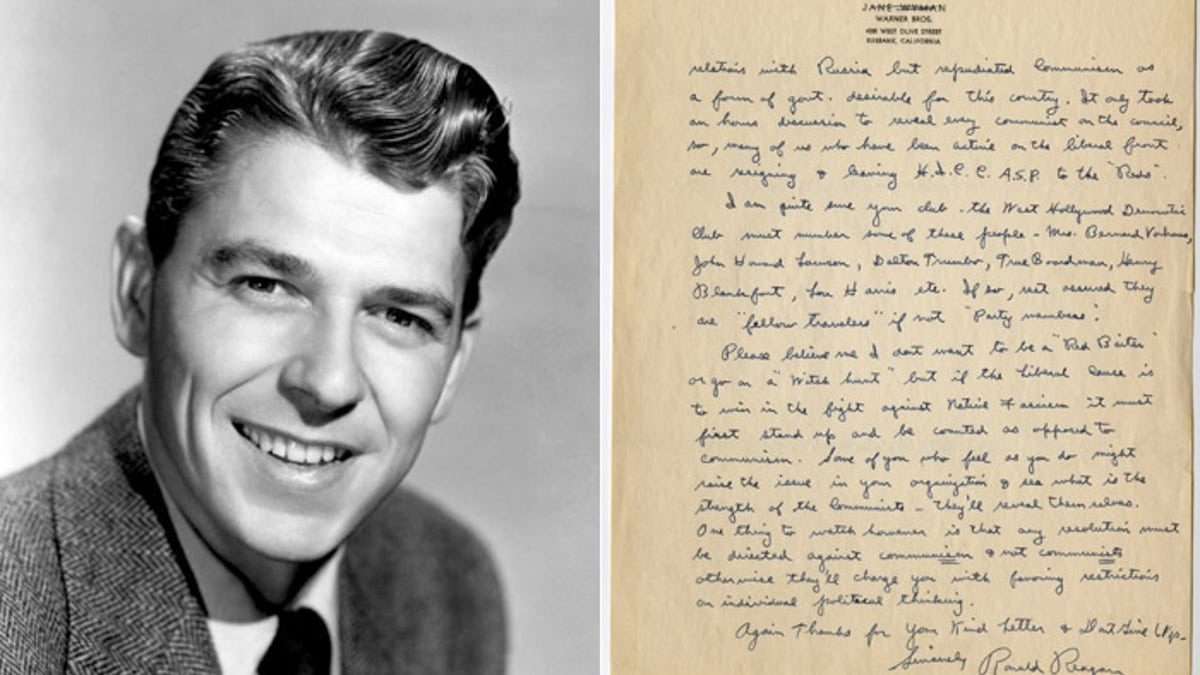 JANE WYMAN
WARNER BROS.
WEST OLIVE STREET
BURBANK, CALIFORNIA
relations with Russia but repudiated Communism as
a form of govt. desirable for this country. It only took
an hours discussion to reveal every communist on the council,
so, many of us who have been active on the liberal front
are resigning & leaving H.I.C.C. A.S.P. to the "Reds".
I am quite sure your club - the West Hollywood Democratic
Club must number some of these people - Mrs. Bernard Vorhaus,
John Howard Lawson, Dalton Trumbo, True Boardman, Henry
Blankfort, Lou Harris etc. If so, rest assured they
are "fellow travelers" if not "Party members".
Please believe me I dont want to be a "Red Baiter"
or go on a "Witch hunt" but if the liberal cause is
to win in the fight against Native Fascism it must
first stand up and be counted as opposed to
communism. Some of you who feel as you do might
raise the issue in your organization & see what is the
strength of the Communists - they'll reveal themselves.
One thing to watch however is that any resolution must
be directed against communism & not communists
otherwise they'll charge you with favoring restrictions
on individual political thinking.
Again Thanks for your Kind Letter & Dont Give Up -
Sincerely Ronald Reagan